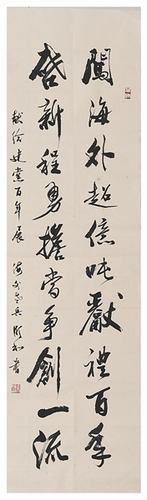 闖海外超億吨獻禮百年
啓新程勇擔當争創一流
献给建黨百年展